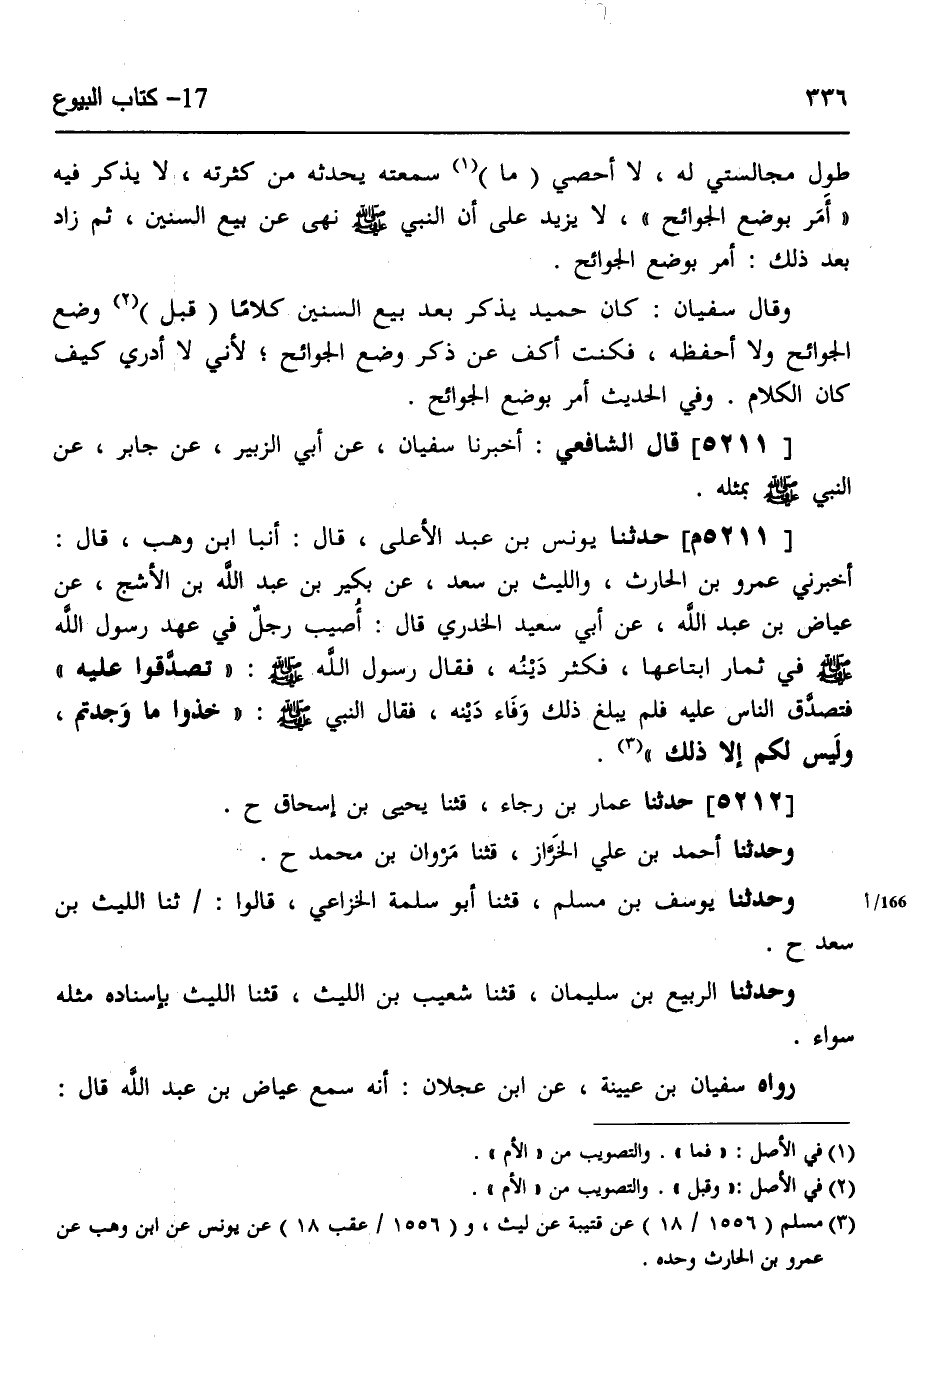 ٣٣٦
17- كتاب البيوع
طول مجالستي له ، لا أحصي ( ما )(١) سمعته يحدثه من كثرته ، لا يذكر فيه
« أَمَر بوضع الجوائح » ، لا يزيد على أن النبي ﷺ نهى عن بيع السنين ، ثم زاد
بعد ذلك : أمر بوضع الجوائح .
وقال سفيان : كان حميد يذكر بعد بيع السنين كلامًا ( قبل )(٢) وضع
الجوائح ولا أحفظه ، فكنت أكف عن ذكر وضع الجوائح ؛ لأني لا أدري كيف
كان الكلام . وفي الحديث أمر بوضع الجوائح .
[ ٥٢١١] قال الشافعي : أخبرنا سفيان ، عن أبي الزبير ، عن جابر ، عن
النبي ﷺ بمثله .
[ ٥٢١١م] حدثنا يونس بن عبد الأعلى ، قال : أنبا ابن وهب ، قال :
أخبرني عمرو بن الحارث ، والليث بن سعد ، عن بكير بن عبد اللَّه بن الأشج ، عن
عياض بن عبد اللَّه ، عن أبي سعيد الخدري قال : أُصيب رجلٌ في عهد رسول اللَّه
ﷺ في ثمار ابتاعها ، فكثر دَيْنُه ، فقال رسول اللَّه ﷺ : « تصدَّقوا عليه »
فتصدَّق الناس عليه فلم يبلغ ذلك وَفَاء دَيْنه ، فقال النبي ﷺ : « خذوا ما وَجدتم ،
ولَيس لكم إلا ذلك »(٣) .
[٥٢١٢] حدثنا عمار بن رجاء ، قثنا يحيى بن إسحاق ح .
وحدثنا أحمد بن علي الخَرَّاز ، قثنا مَرْوان بن محمد ح .
وحدثنا يوسف بن مسلم ، قثنا أبو سلمة الخزاعي ، قالوا : / ثنا الليث بن
166/أ
سعد ح .
وحدثنا الربيع بن سليمان ، قثنا شعيب بن الليث ، قثنا الليث بإسناده مثله
سواء .
رواه سفيان بن عيينة ، عن ابن عجلان : أنه سمع عياض بن عبد اللَّه قال :
(١) في الأصل : « فما » . والتصويب من « الأم » .
(٢) في الأصل :« وقبل » . والتصويب من « الأم » .
(٣) مسلم ( ١٥٥٦ / ١٨ ) عن قتيبة عن ليث ، و ( ١٥٥٦ / عقب ١٨ ) عن يونس عن ابن وهب عن
عمرو بن الحارث وحده .